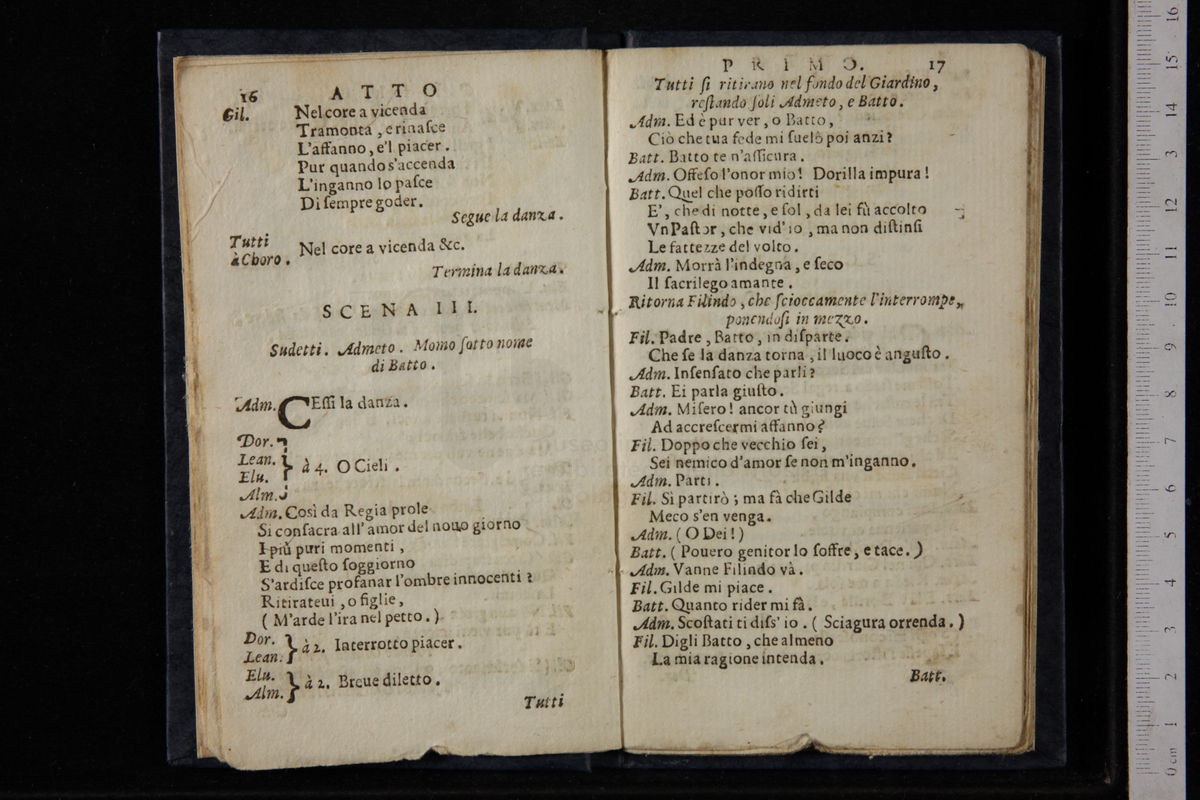 16 ATTO
Gil. Nel core a vicenda
Tramonta, e rinaſce
L'affanno, e'l piacer.
Pur quando s'accenda
L'inganno lo paſce
Di ſempre goder.
Segue la danza.
Tutti
à Choro. Nel core a vicenda &c.
Termina la danza.
SCENA III.
Sudetti. Admeto. Momo ſotto nome
di Batto.
Adm. CEſſi la danza.
Dor.
Lean.
Elu.
Alm. } à 4. O Cieli.
Adm. Così da Regia prole
Si conſacra all'amor del nouo giorno
I più puri momenti,
E di queſto ſoggiorno
S'ardiſce profanar l'ombre innocenti?
Ritirateui, o figlie,
(M'arde l'ira nel petto.)
Dor.
Lean. } à 2. Interrotto piacer.
Elu.
Alm. } à 2. Breue diletto.
Tutti
PRIMO. 17
Tutti ſi ritirano nel fondo del Giardino,
reſtando ſoli Admeto, e Batto.
Adm. Ed è pur ver, o Batto,
Ciò che tua fede mi ſuelò poi anzi?
Batt. Batto te n'aſſicura.
Adm. Offeſo l'onor mio! Dorilla impura!
Batt. Quel che poſſo ridirti
E', che di notte, e ſol, da lei fù accolto
Vn Paſtor, che vid'io, ma non diſtinſi
Le fattezze del volto.
Adm. Morrà l'indegna, e ſeco
Il ſacrilego amante.
Ritorna Filindo, che ſcioccamente l'interrompe,
ponendoſi in mezzo.
Fil. Padre, Batto, in diſparte.
Che ſe la danza torna, il luoco è anguſto.
Adm. Inſenſato che parli?
Batt. Ei parla giuſto.
Adm. Miſero! ancor tù giungi
Ad accreſcermi affanno?
Fil. Doppo che vecchio ſei,
Sei nemico d'amor ſe non m'inganno.
Adm. Parti.
Fil. Sì partirò; ma fà che Gilde
Meco s'en venga.
Adm. (O Dei!)
Batt. (Pouero genitor lo ſoffre, e tace.)
Adm. Vanne Filindo và.
Fil. Gilde mi piace.
Batt. Quanto rider mi fà.
Adm. Scoſtati ti diſs'io. (Sciagura orrenda.)
Fil. Digli Batto, che almeno
La mia ragione intenda.
Batt.
0 cm 1 2 3 4 5 6 7 8 9 10 11 12 3 14 15 16